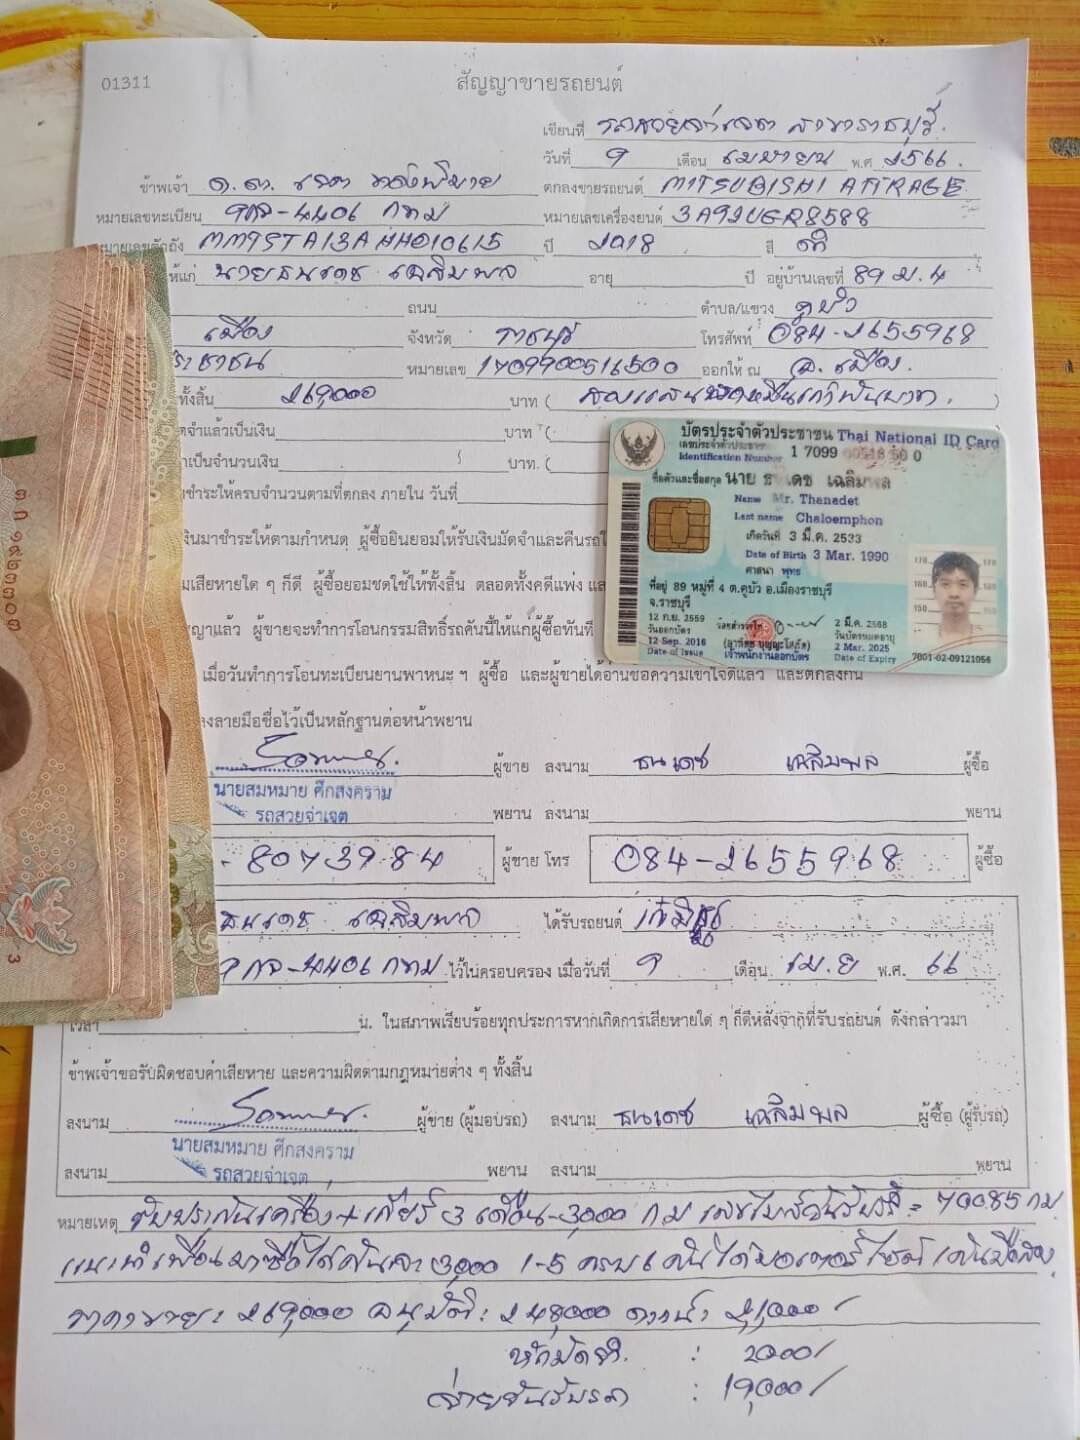 01311
สัญญาขายรถยนต์
เขียนที่ รถสวยจ่าเจต สาขาราชบุรี.
วันที่ 9 เดือน เมษายน พ.ศ 2566.
ข้าพเจ้า ด.ต. เจต ตกลงขายรถยนต์ MITSUBISHI ATTRAGE
หมายเลขทะเบียน 9กจ-4406 กทม หมายเลขเครื่องยนต์ 3A92UGR8588
หมายเลขตัวถัง MMTSTA13AHH010615 ปี 2018 สี ดำ
ให้แก่ นายธนเดช เฉลิมพล อายุ ปี อยู่บ้านเลขที่ 89 ม.4
ถนน ตำบล/แขวง คูบัว
เมือง จังหวัด ราชบุรี โทรศัพท์ 084-2655968
ประชาชน หมายเลข 1709900516500 ออกให้ ณ อ. เมือง.
ทั้งสิ้น 269,000 บาท ( สองแสนหกหมื่นเก้าพันบาท. )
บาท (
เป็นจำนวนเงิน บาท. (
ชำระให้ครบจำนวนตามที่ตกลง ภายใน วันที่
เงินมาชำระให้ตามกำหนด ผู้ซื้อยินยอมให้ริบเงินมัดจำและคืนรถ
เสียหายใด ๆ ก็ดี ผู้ซื้อยอมชดใช้ให้ทั้งสิ้น ตลอดทั้งคดีแพ่ง
ญาแล้ว ผู้ขายจะทำการโอนกรรมสิทธิ์รถคันนี้ให้แก่ผู้ซื้อทันที
เมื่อวันทำการโอนทะเบียนยานพาหนะ ฯ ผู้ซื้อ และผู้ขายได้อ่านข้อความเข้าใจดีแล้ว และตกลงกัน
ลงลายมือชื่อไว้เป็นหลักฐานต่อหน้าพยาน
บัตรประจำตัวประชาชน Thai National ID Card
เลขประจำตัวประชาชน
Identification Number 1 7099 00516 50 0
ชื่อตัวและชื่อสกุล นาย ธนเดช เฉลิมพล
Name Mr. Thanadet
Last name Chaloemphon
เกิดวันที่ 3 มี.ค. 2533
Date of Birth 3 Mar. 1990
ศาสนา พุทธ
ที่อยู่ 89 หมู่ที่ 4 ต.คูบัว อ.เมืองราชบุรี
จ.ราชบุรี
12 ก.ย. 2559
วันออกบัตร
12 Sep. 2016
Date of Issue
เจ้าพนักงานออกบัตร
2 มี.ค. 2568
วันบัตรหมดอายุ
2 Mar. 2025
Date of Expiry
7001-02-09121056
ผู้ขาย ลงนาม ธนเดช เฉลิมพล ผู้ซื้อ
นายสมหมาย ศึกสงคราม
รถสวยจ่าเจต
พยาน ลงนาม พยาน
- 8073984 ผู้ขาย โทร 084-2655968 ผู้ซื้อ
ธนเดช เฉลิมพล ได้รับรถยนต์ เก๋ง
9กจ-4406 กทม ไว้ในครอบครอง เมื่อวันที่ 9 เดือน เม.ย พ.ศ. 66
เวลา น. ในสภาพเรียบร้อยทุกประการหากเกิดการเสียหายใด ๆ ก็ดีหลังจากที่รับรถยนต์ ดังกล่าวมา
ข้าพเจ้าขอรับผิดชอบค่าเสียหาย และความผิดตามกฎหมายต่าง ๆ ทั้งสิ้น
ลงนาม ผู้ขาย (ผู้มอบรถ) ลงนาม ธนเดช เฉลิมพล ผู้ซื้อ (ผู้รับรถ)
นายสมหมาย ศึกสงคราม
รถสวยจ่าเจต
ลงนาม พยาน ลงนาม พยาน
หมายเหตุ รับประกันเครื่อง+เกียร์ 3 เดือน-3,000 กม เลขไมล์วันรับรถ = 70085 กม.
แนะนำเพื่อนมาซื้อได้คันละ 3,000 1-5 ครบ
ราคาขาย: 269,000 อนุมัติ: 248,000 ดาวน์: 21,000/
หักมัดจำ. : 2000/
จ่ายวันรับรถ : 19,000/